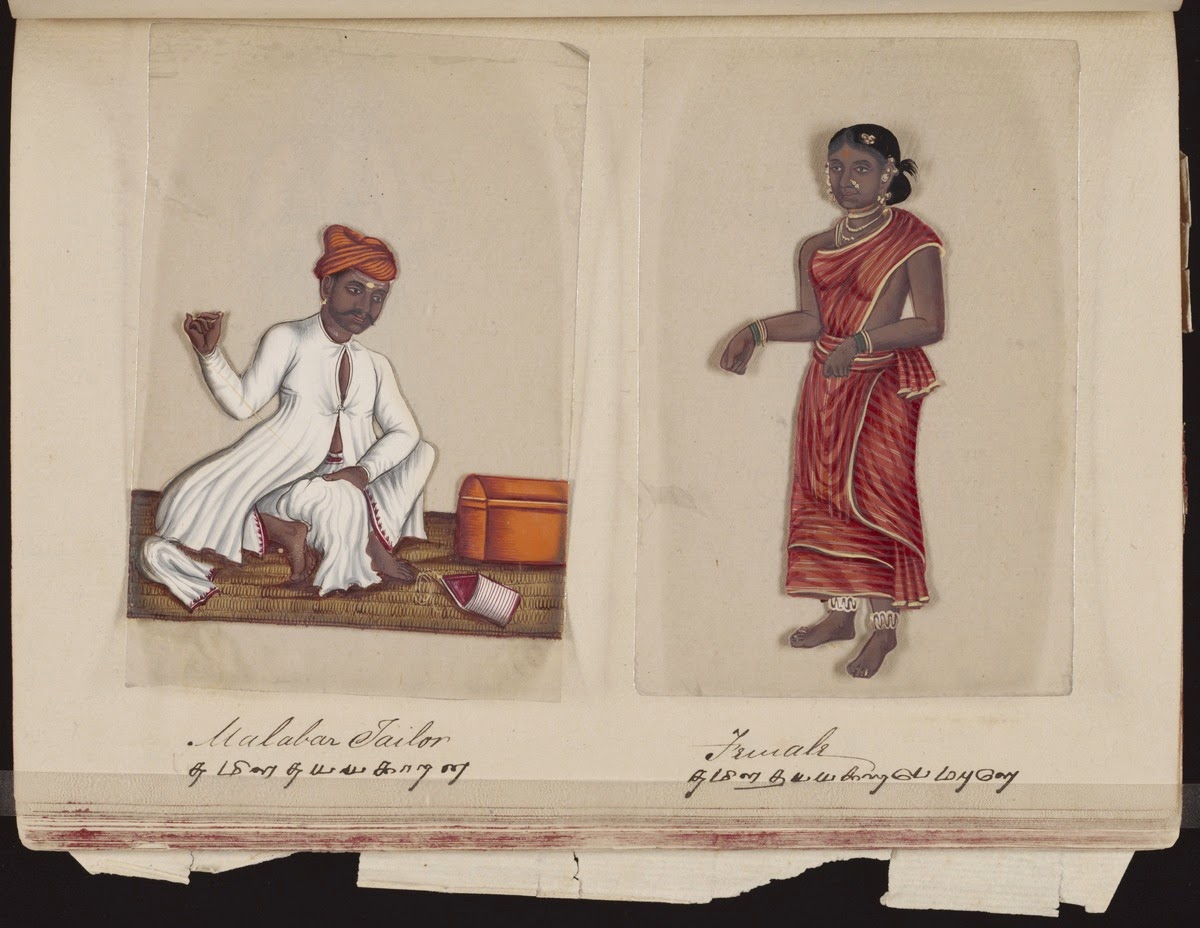 Malabar Tailor
தமிள தயயகாறன
Female
தமிள தயயகாறபெமபுளெ